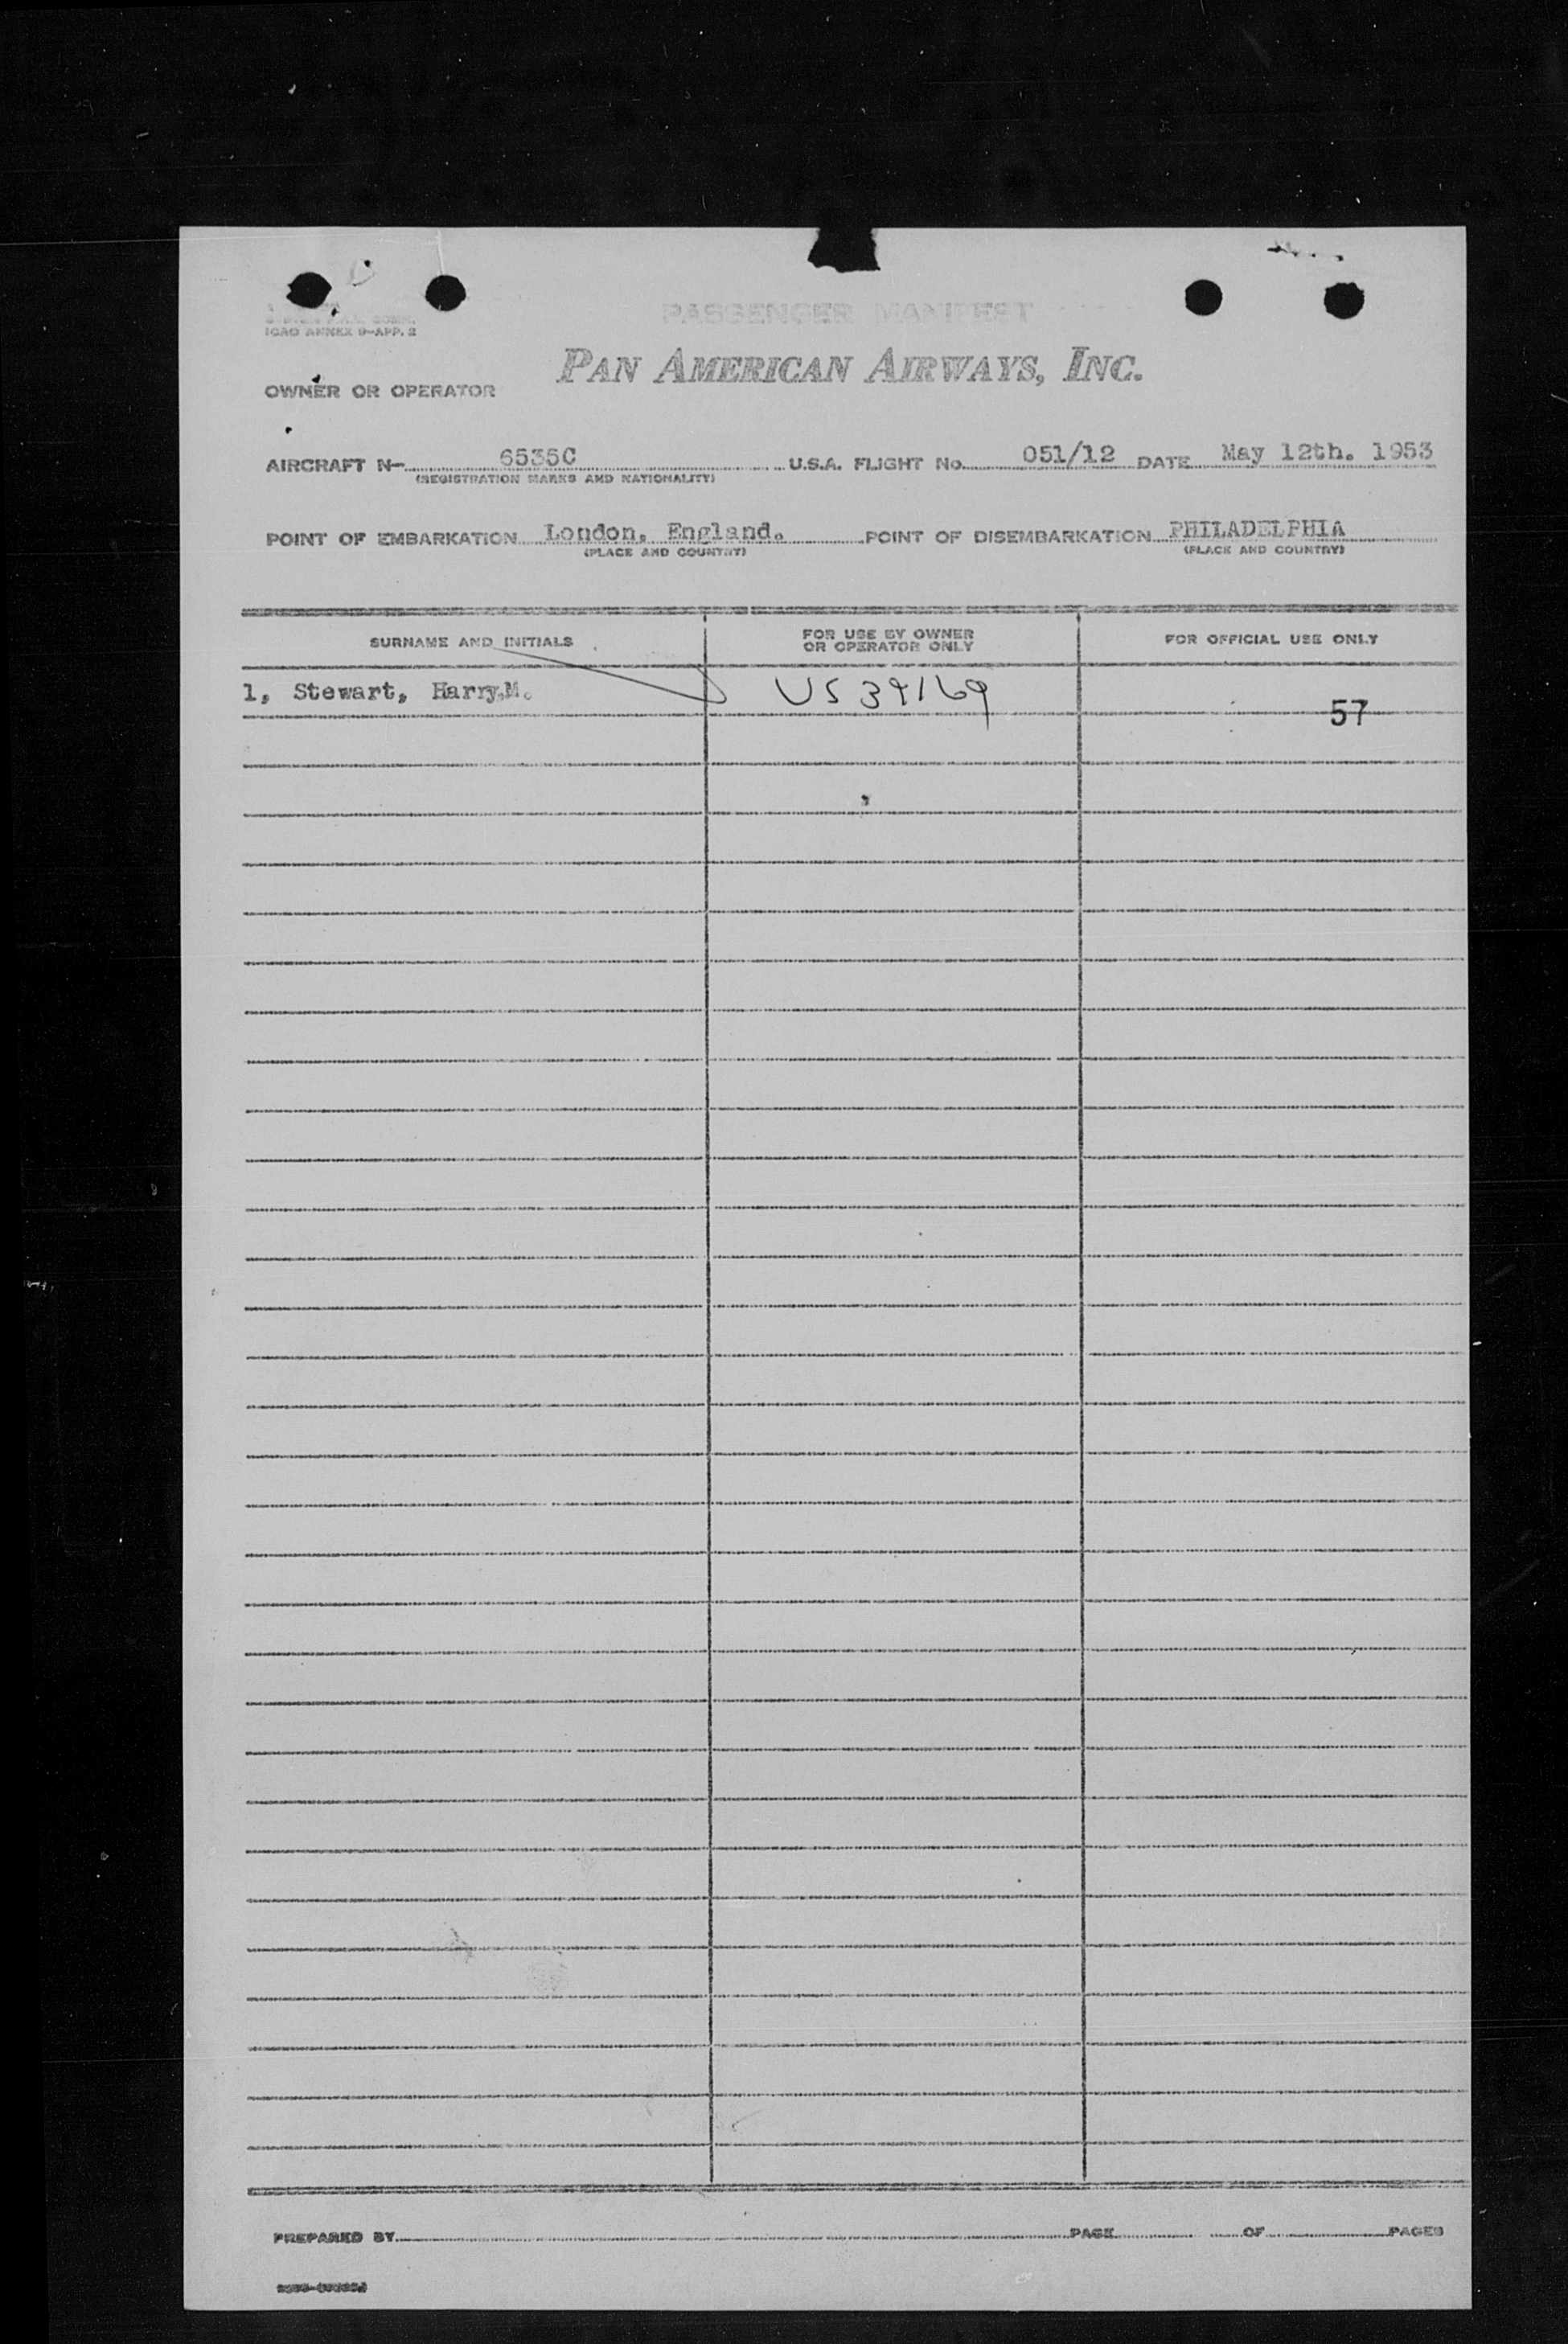 PASSENGER MANIFEST
ICAO ANNEX 9-APP. 2
PAN AMERICAN AIRWAYS, INC.
OWNER OR OPERATOR
AIRCRAFT N- 6535C U.S.A. FLIGHT No. 051/12 DATE May 12th. 1953
(REGISTRATION MARKS AND NATIONALITY)
POINT OF EMBARKATION London, England. POINT OF DISEMBARKATION PHILADELPHIA
(PLACE AND COUNTRY) (PLACE AND COUNTRY)
SURNAME AND INITIALS FOR USE BY OWNER OR OPERATOR ONLY FOR OFFICIAL USE ONLY
1, Stewart, Harry.M. US 39169
57
PREPARED BY PAGE OF PAGES